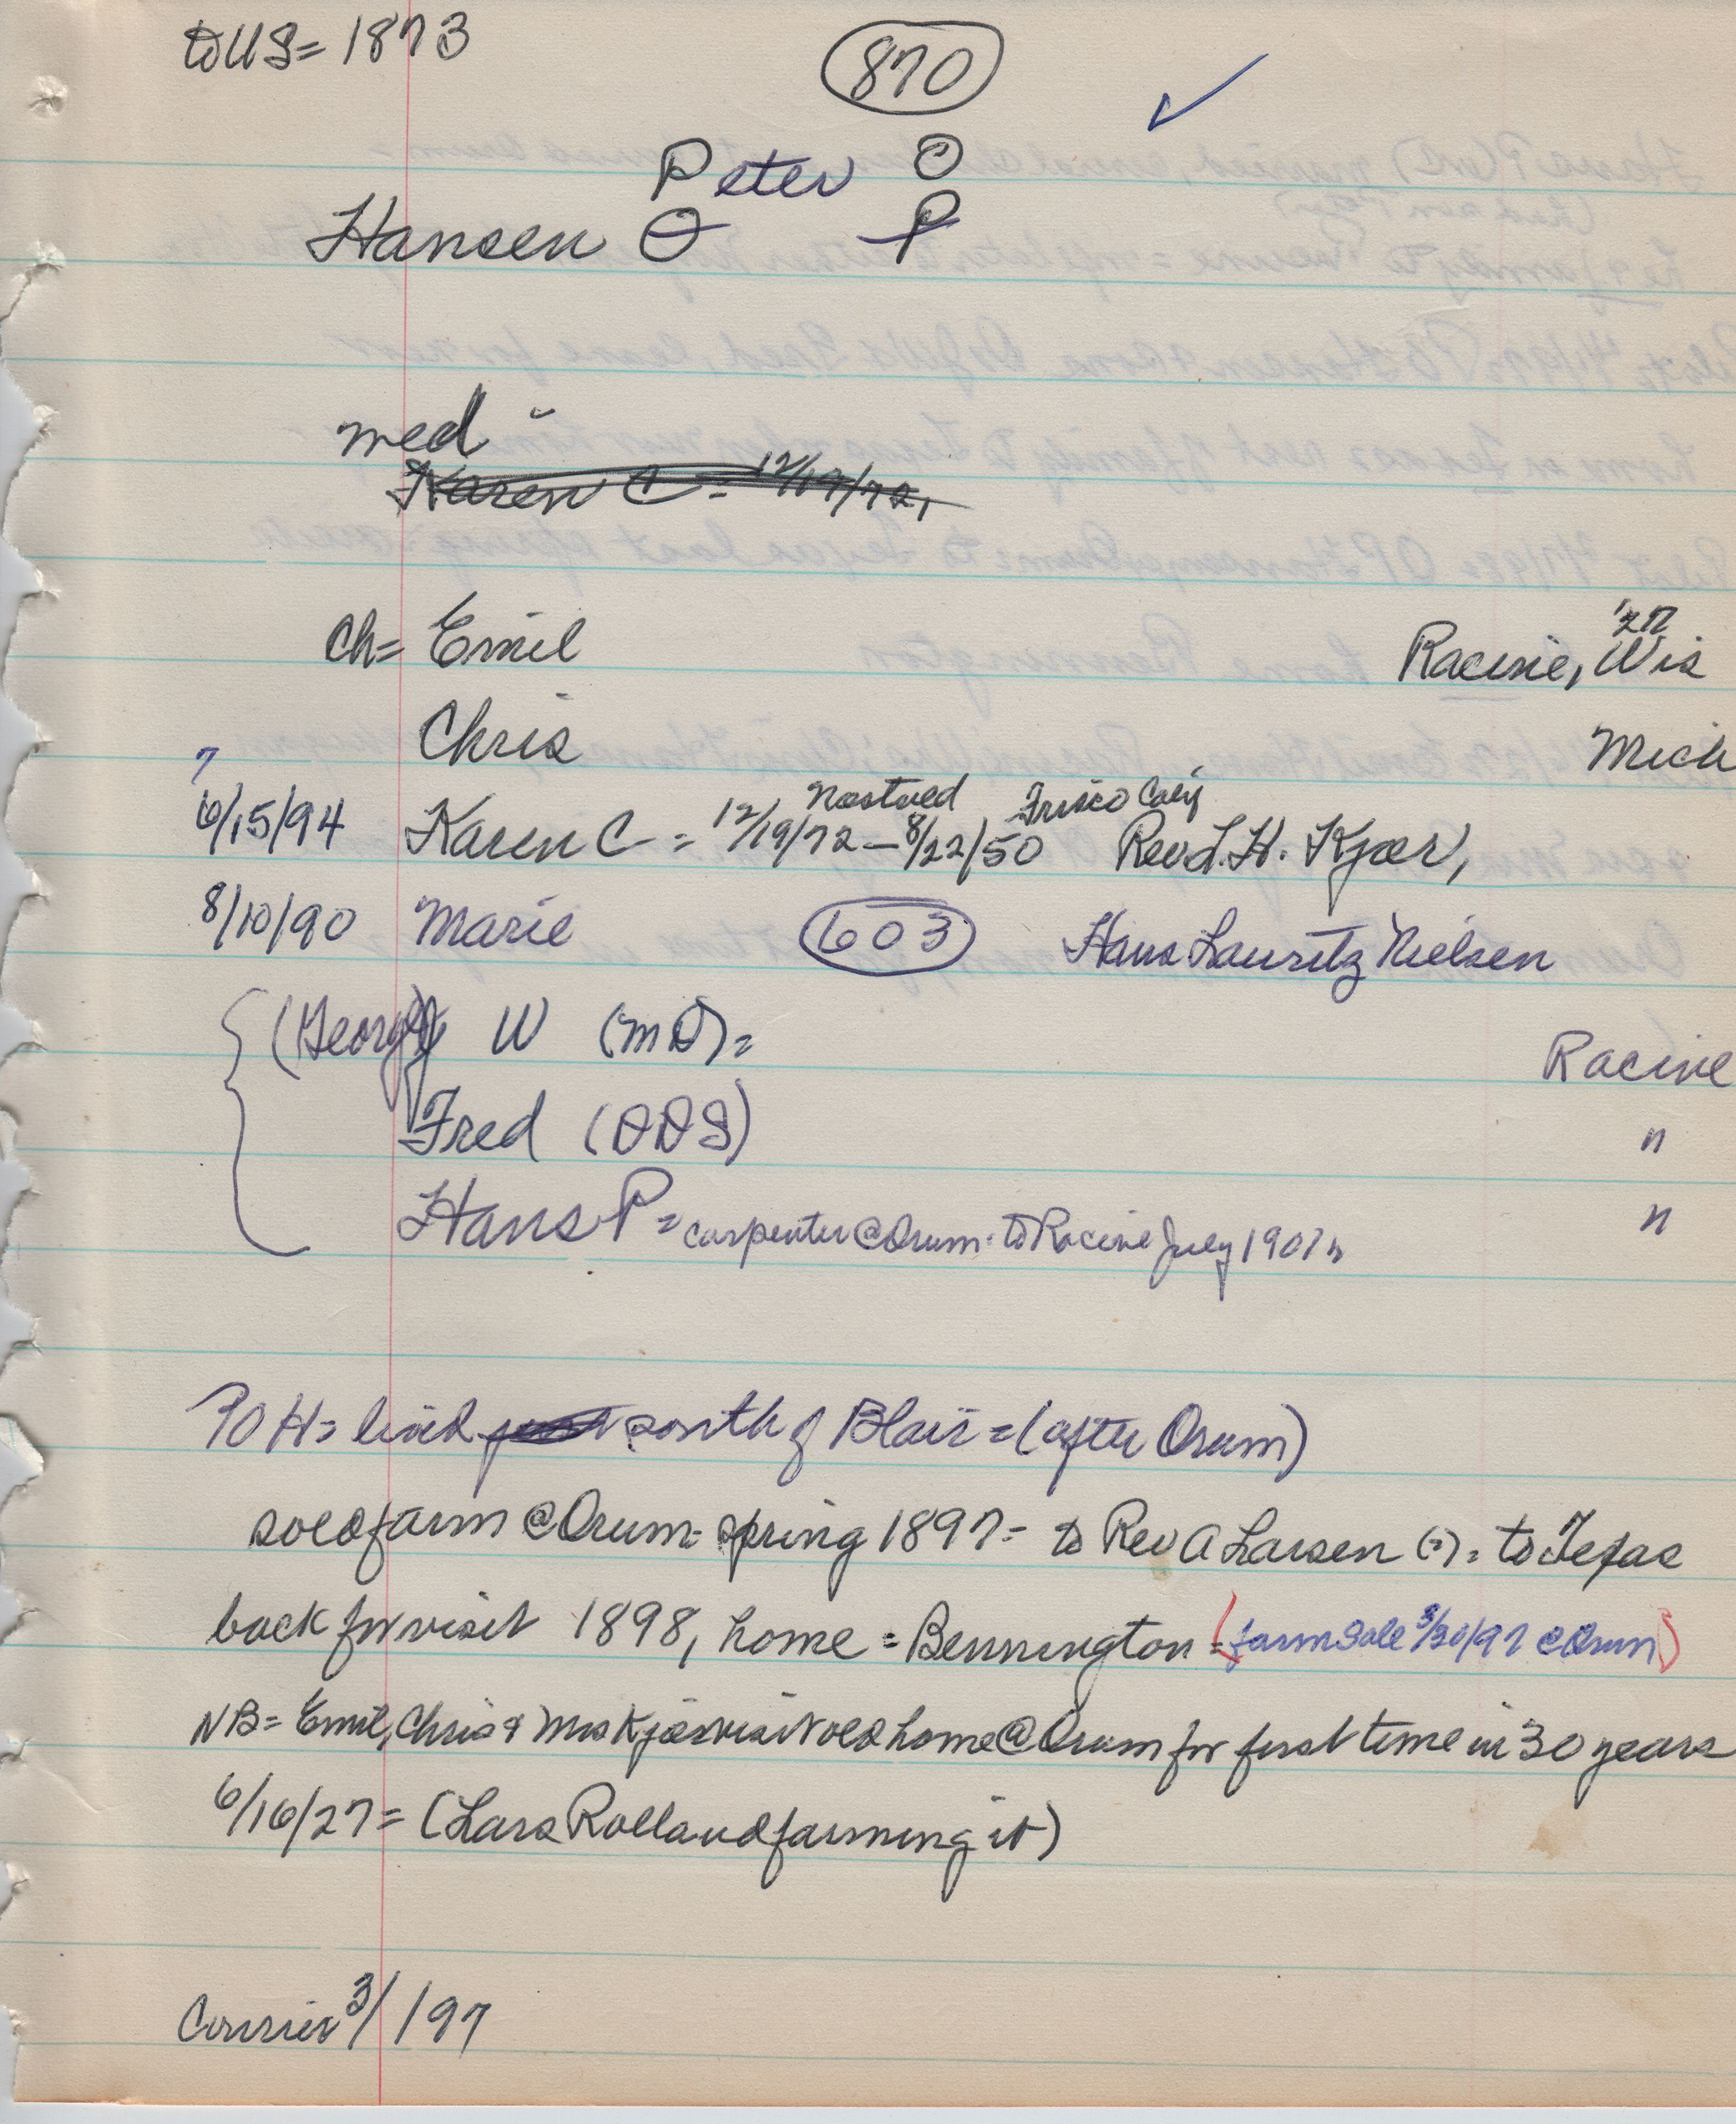 to US = 1873
870
Peter O
Hansen O P
med
Karen C = 12/19/72,
'27
Ch = Emil Racine, Wis
Chris Mich
7
Nastved Frisco Calif
6/15/94 Karen C = 12/19/72 – 8/22/50 Rev L. H. Kjaer,
8/10/90 Marie 603 Hans Lauritz Nielsen
(George) W (MD) = Racine
Fred (DDS) "
Hans P = carpenter @ Orum - to Racine July 1901 "
POH = lived south of Blair = (after Orum)
sold farm @ Orum - spring 1897 = to Rev A Larsen (?) = to Texas
back for visit 1898, home = Bennington = (farm Sale 3/30/97 @ Orum)
NB = Emil, Chris & Mrs Kjaer visit old home @ Orum for first time in 30 years
6/16/27 = (Lars Rolland farming it)
Courier 3/ /97